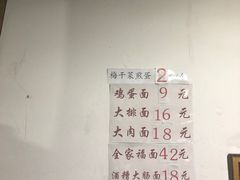 梅干菜煎蛋2
鸡蛋面9元
大排面16元
大肉面18元
全家福面42元
酒糟大肠面18元